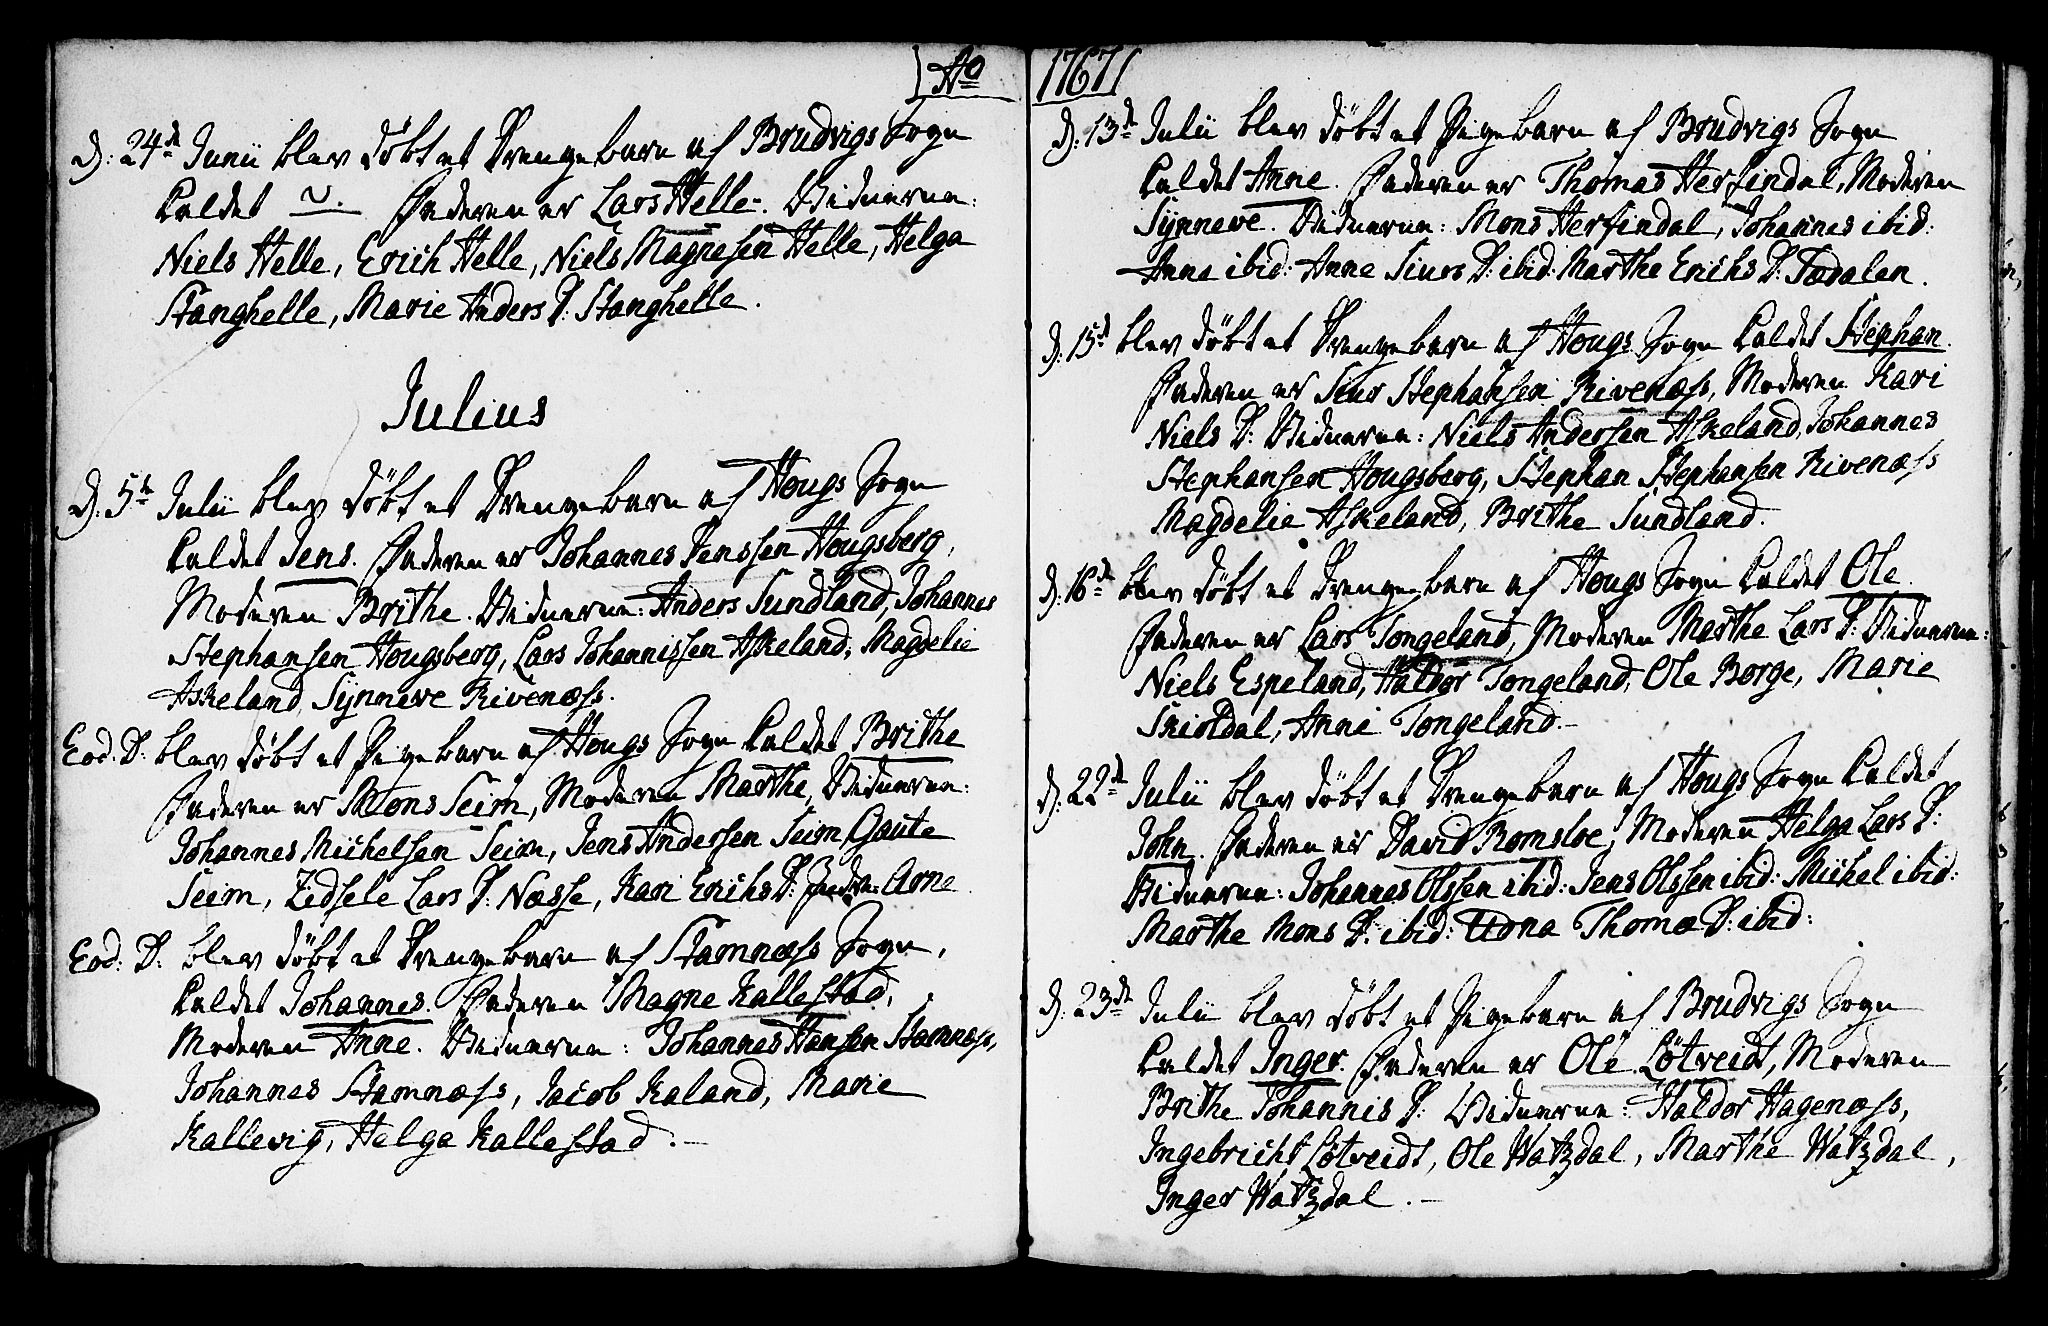 Ao 1767
D: 24de Junii blev döbt et Drengebarn af Brudvigs Sogn
kaldet ~. Faderen er Lars Helle. Vidnerne:
Niels Helle, Erich Helle, Niels Magnesen Helle, Helga
Stanghelle, Marie Anders D: Stanghelle.
Julius
D: 5te Julii blev döbt et Drengebarn af Hougs Sogn
kaldet Jens. Faderen er Johannes Jenssen Hougsberg,
Moderen Brithe. Vidnerne: Anders Sundland, Johannes
Stephansen Hougsberg, Lars Johannissen Askeland, Magdelie
Askeland, Synneve Rivenæss.
Eod. D: blev döbt et Pigebarn af Hougs Sogn kaldet Brithe
Faderen er Mons Seim, Moderen Marthe, Vidnerne:
Johannes Michelsen Seim, Jens Andersen Seim, Gaute
Seim, Zidsele Lars D: Næsse, Kari Erichs D: Arne
Eod: D: blev döbt et Drengebarn af Stamnæss Sogn,
kaldet Johannes. Faderen Magne Kallestad,
Moderen Anne. Vidnerne: Johannes Hansen Stamnæss,
Johannes Stamnæss, Jacob Kaland, Marie
Kallevig, Helga Kallestad.
D: 13de Julii blev döbt et Pigebarn af Brudvigs Sogn
kaldet Anne. Faderen er Thomas Herfindal, Moderen
Synneve. Vidnerne: Mons Herfindal, Johannes ibid:
Anna ibid: Anne Siurs D: ibid: Marthe Erichs D: Tædalen.
D: 15de blev döbt et Drengebarn af Hougs Sogn kaldet Stephan.
Faderen er Siur Stephansen Rivenæss, Moderen Kari
Niels D: Vidnerne: Niels Andersen Askeland, Johannes
Stephansen Hougsberg, Stephan Stephansen Rivenæss
Magdelie Askeland, Brithe Sundland.
D: 16de blev döbt et Drengebarn af Hougs Sogn kaldet Ole.
Faderen er Lars Tongeland, Moderen Marthe Lars D: Vidnerne:
Niels Espeland, Haldor Tongeland, Ole Borge, Marie
Skioldal, Anni Tongeland.
D: 22de Julii blev döbt et Drengebarn af Hougs Sogn kaldet
John. Faderen er David Romsloe, Moderen Helga Lars D:
Vidnerne: Johannes Olssen ibid: Jens Olssen ibid: Michel ibid:
Marthe Mons D: ibid: Udna Thomæ D: ibid:
D: 23de Julii blev döbt et Pigebarn af Brudvigs Sogn
kaldet Inger. Faderen er Ole Lötveidt, Moderen
Brithe Johannis D: Vidnerne: Haldor Hagenæss,
Ingebricht Lötveidt, Ole Watzdal, Marthe Watzdal,
Inger Watzdal.